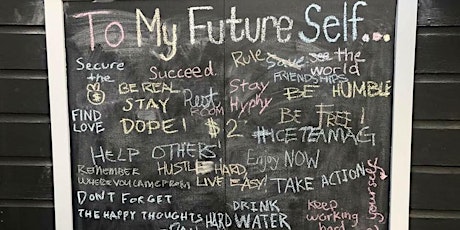 To My Future Self...
Secure the
Succeed.
Rule
Save see the world
FRIENDSHIPS
BE REAL
STAY DOPE!
Rest
ROOM
Stay Hyphy
BE HUMBLE
FIND LOVE
$2
BE FREE!
#ICETEAMAG
HELP OTHERS!
Enjoy NOW
REMEMBER WHERE YOU CAME FROM
HUSTLE HARD
LIVE EASY!
TAKE ACTION
DON'T FORGET
THE HAPPY THOUGHTS
HARD
DRINK WATER
keep working hard
yourself